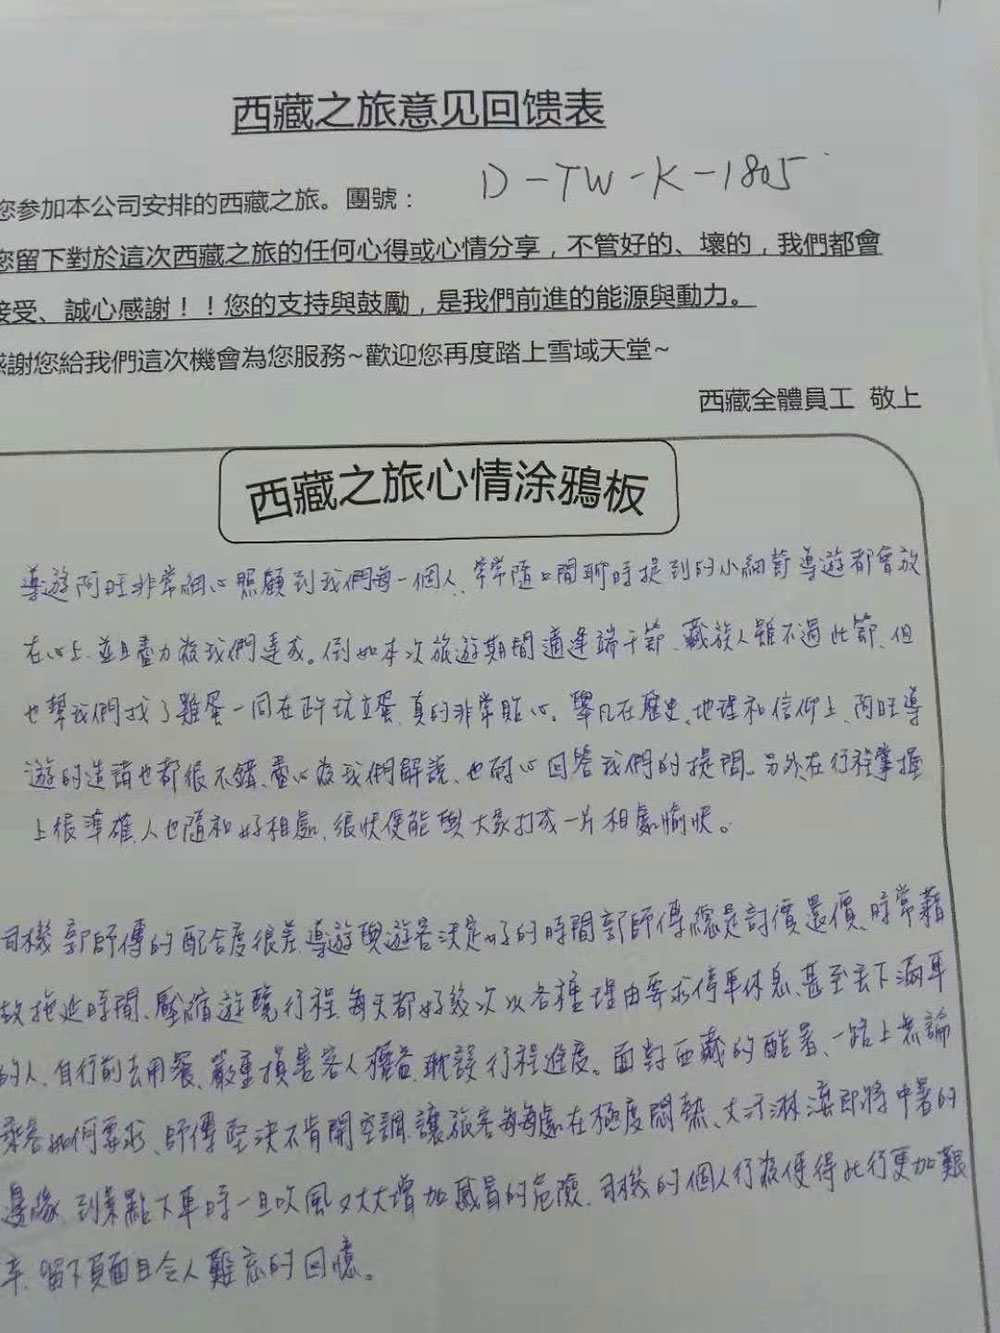 西藏之旅意见回馈表
您参加本公司安排的西藏之旅。團號： D-TW-K-1805
您留下對於這次西藏之旅的任何心得或心情分享，不管好的、壞的，我們都會
接受、誠心感謝！！您的支持與鼓勵，是我們前進的能源與動力。
感謝您給我們這次機會為您服務~歡迎您再度踏上雪域天堂~
西藏全體員工 敬上
西藏之旅心情涂鴉板
導遊阿旺非常細心照顧到我們每一個人、常常隨口閒聊時提到的小細節導遊都會放
在心上、並且盡力為我們達成。例如本次旅遊期間適逢端午節、藏族人雖不過此節、但
也幫我們找了雞蛋一同在正午玩立蛋、真的非常貼心。舉凡在歷史、地理和信仰上、阿旺導
遊的造詣也都很不錯、盡心為我們解說、也耐心回答我們的提問。另外在行程掌握
上很準確、人也隨和好相處、很快便能與大家打成一片相處愉快。
司機郭師傅的配合度很差、導遊與遊客決定好的時間郭師傅總是討價還價、時常藉
故拖延時間、壓縮遊覽行程、每天都好幾次以各種理由要求停車休息、甚至丟下滿車
的人、自行前去用餐、嚴重損害客人權益、耽誤行程進度。面對西藏的酷暑、一路上無論
乘客如何要求、師傅堅決不肯開空調、讓旅客每每處在極度悶熱、大汗淋漓即將中暑的
邊緣、到景點下車時一旦吹風又大大增加感冒的危險、司機的個人行為使得此行更加艱
辛、留下負面且令人難忘的回憶。